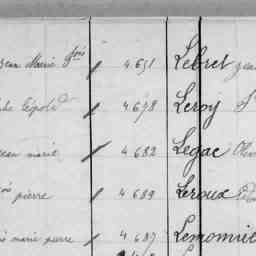 Jean Marie fois 4.651 Lebret Jean
4.678 Leroy
Jean marie 4.682 Legac
pierre 4.689 Leroux
marie pierre 4.687 Lemonnie